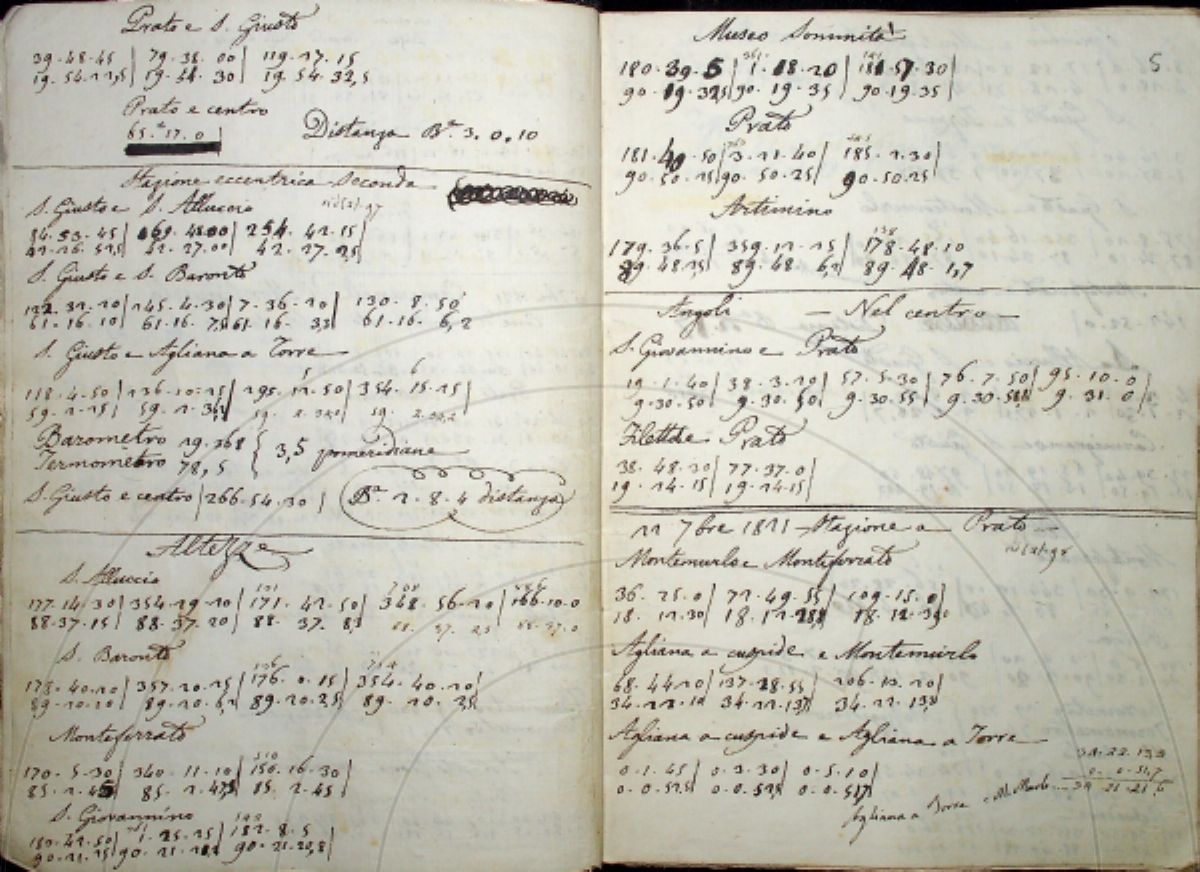 Prato e S. Giusto
39.48.45 | 79.38.00 | 119.17.15
19.54.22,5 | 19.54.30 | 19.54.32,5
Prato e centro
65.17.0
Distanza Bª. 3.0.10
Stazione eccentrica seconda
S. Giusto e S. Alluccio
84.53.45 254.42.15
42.27.00 42.27.25
S. Giusto e S. Baronto
122.32.20 | 245.4.30 | 7.36.20 | 130.8.50
61.16.10 | 61.16.7,5 | 61.16.3,3 | 61.16.6,2
S. Giusto e Agliana a Torre
5 6
118.4.50 | 236.10.25 | 295.12.50 | 354.15.15
59.2.25 |
Barometro 29.368
Termometro 78,5
3,5 pomeridiane
S. Giusto e centro | 266.54.30 | Bª. 2.8.4 distanza
Altezze
S. Alluccio
177.14.30 | 354.29.20 | 171.42.50 | 348.56.20 | 166.10.0
88.37.15 | 88.37.20 | 88.37.8
S. Baronto
178.20.20 | 357.20.25 | 176.0.15 | 354.40.20
89.10.10 | 89.10.6,2 | 89.10.2,5 | 89.10.2,5
Monteferrato
170.5.30 | 340.11.10 | 150.16.30
85.2.45 | 85.2.47,5 | 85.2.45
S. Giovannino
180.42.50 | 1.25.25 | 182.8.5
90.21.25 | 90.21.20,8
Museo Sommità
5
180.39.5 | 1.18.20 | 181.57.30
90.19.32,5 | 90.19.35 | 90.19.35
Prato
181.40.50 | 3.21.40 | 185.2.30
90.50.25 | 90.50.25 | 90.50.25
Artimino
179.36.5 | 359.12.25 | 178.48.10
89.48.2,5 | 89.48.6,2 | 89.48.1,7
Angoli — Nel centro —
S. Giovannino e Prato
19.1.40 | 38.3.20 | 57.5.30 | 76.7.50 | 95.10.0
9.30.50 | 9.30.50 | 9.30.55 | 9.31.0
Filettole Prato
38.48.30 | 77.37.0
19.24.15 | 19.24.15
22 7bre 1821 Stazione a Prato
Montemurlo e Monteferrato
36.25.0 | 72.49.55 | 109.15.0
18.12.30 | 18.12.28,8 | 18.12.30
Agliana a cuspide e Montemurlo
68.44.20 | 137.28.55 | 206.13.20
34.22.10 | 34.22.13,7 | 34.22.13,3
Agliana a cuspide e Agliana a Torre
0.1.45 | 0.3.30 | 0.5.10
0.0.52,5 | 0.0.52,5 | 0.0.51,7
34.22.13,3
0.0.51,7
Agliana a Torre e M. Murlo — 34.21.21,6